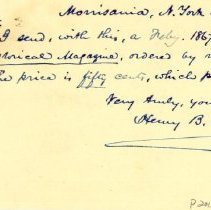 Morrisania, N. York
I send, with this, a Feby. 1867
Historical Magazine, ordered by
the price is fifty cents, which p
Very truly, you
Henry B.
P 201